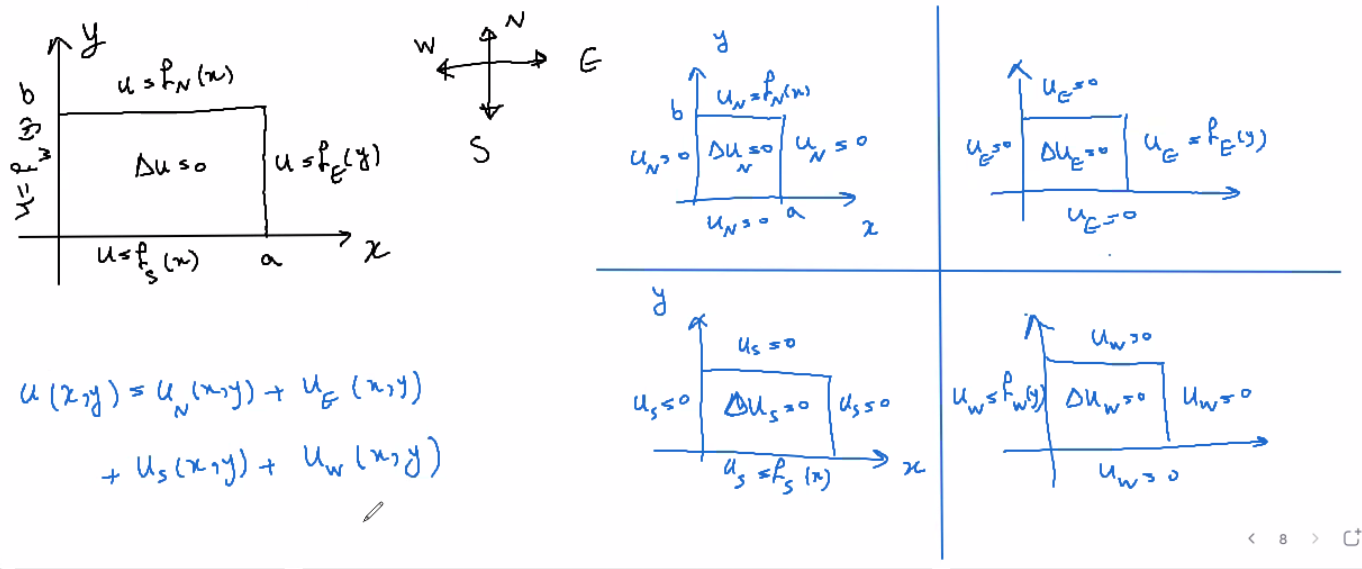 y
N
W
E
S
b
u = f_N(x)
u = f_W(y)
Δu = 0
u = f_E(y)
u = f_S(x)
a
x
u(x,y) = u_N(x,y) + u_E(x,y)
+ u_S(x,y) + u_W(x,y)
y
b
u_N = f_N(x)
u_N = 0
Δu_N = 0
u_N = 0
u_N = 0
a
x
u_E = 0
u_E = 0
Δu_E = 0
u_E = f_E(y)
u_E = 0
y
u_S = 0
u_S = 0
Δu_S = 0
u_S = 0
u_S = f_S(x)
x
u_W = 0
u_W = f_W(y)
Δu_W = 0
u_W = 0
u_W = 0
< 8 >